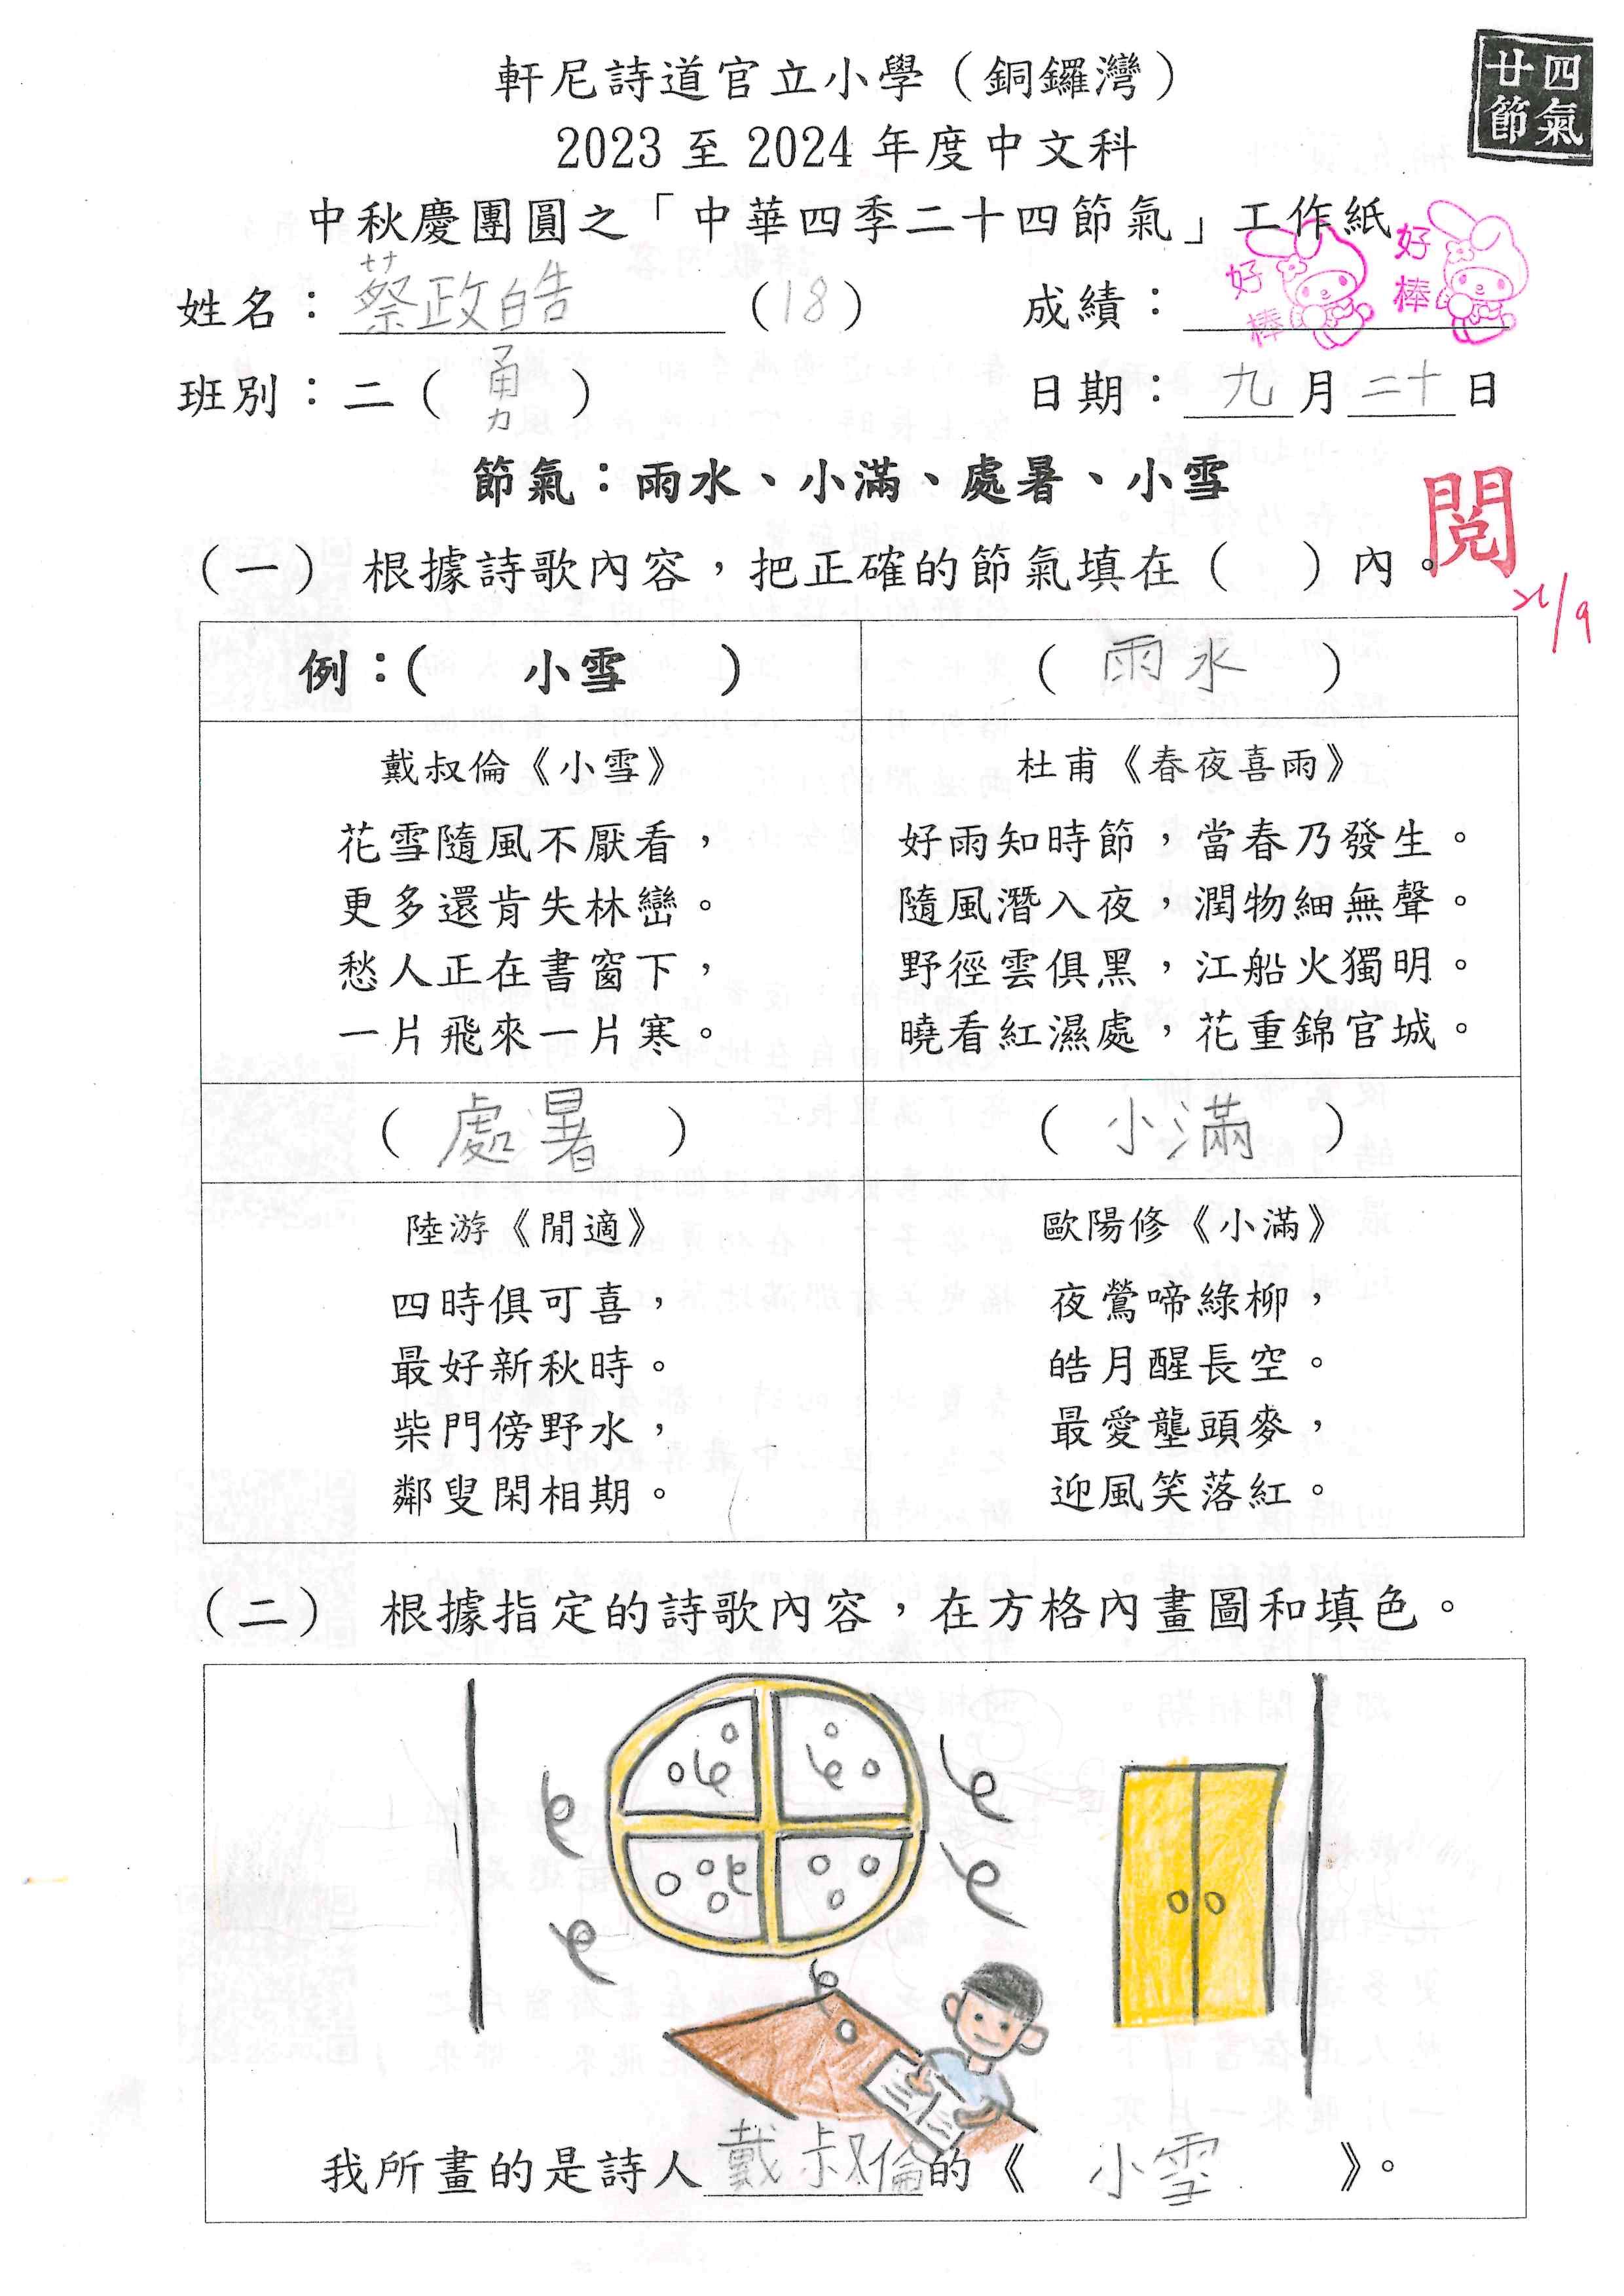 廿四
節氣
軒尼詩道官立小學（銅鑼灣）
2023 至 2024 年度中文科
中秋慶團圓之「中華四季二十四節氣」工作紙
姓名：蔡政皓（18） 成績：
好棒 好棒
班別：二（勇） 日期：九月二十日
節氣：雨水、小滿、處暑、小雪
閱
（一） 根據詩歌內容，把正確的節氣填在（ ）內。
例：( 小雪 ) （ 雨水 ）
戴叔倫《小雪》
花雪隨風不厭看，
更多還肯失林巒。
愁人正在書窗下，
一片飛來一片寒。
杜甫《春夜喜雨》
好雨知時節，當春乃發生。
隨風潛入夜，潤物細無聲。
野徑雲俱黑，江船火獨明。
曉看紅濕處，花重錦官城。
（ 處暑 ） （ 小滿 ）
陸游《閒適》
四時俱可喜，
最好新秋時。
柴門傍野水，
鄰叟閑相期。
歐陽修《小滿》
夜鶯啼綠柳，
皓月醒長空。
最愛壟頭麥，
迎風笑落紅。
（二） 根據指定的詩歌內容，在方格內畫圖和填色。
我所畫的是詩人戴叔倫的《 小雪 》。